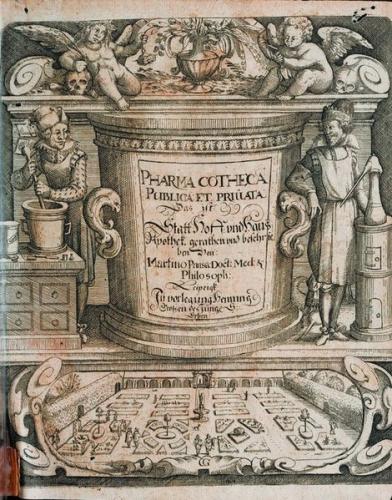 PHARMACOTHECA
PUBLICA ET PRIVATA.
Das ist
Statt Hoff und Hauß
Apothek. gerathen und beschrie
ben Von:
Martino Pansa Doct: Med: &
Philosoph:
Leipzigk
In vorlegung Henning
Grossen des Jüng
Erben
G